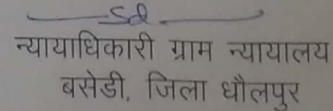 Sd.
न्यायाधिकारी ग्राम न्यायालय
बसेडी, जिला धौलपुर